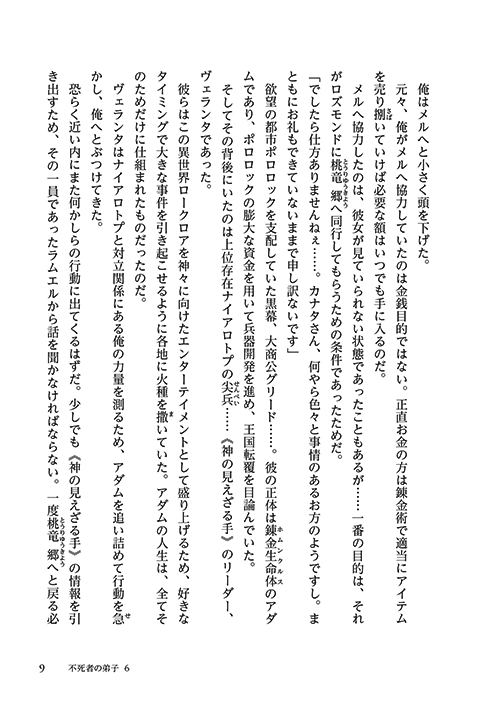 俺はメルへと小さく頭を下げた。
元々、俺がメルへ協力していたのは金銭目的ではない。正直お金の方は錬金術で適当にアイテム
を売り捌いていけば必要な額はいつでも手に入るのだ。
メルへ協力したのは、彼女が見ていられない状態であったこともあるが……一番の目的は、それ
がロズモンドに桃竜郷へ同行してもらうための条件であったためだ。
「でしたら仕方ありませんねぇ……。カナタさん、何やら色々と事情のあるお方のようですし。ま
ともにお礼もできていないままで申し訳ないです」
欲望の都市ポロロックを支配していた黒幕、大商公グリード……。彼の正体は錬金生命体のアダ
ムであり、ポロロックの膨大な資金を用いて兵器開発を進め、王国転覆を目論んでいた。
そしてその背後にいたのは上位存在ナイアロトプの尖兵……《神の見えざる手》のリーダー、
ヴェランタであった。
彼らはこの異世界ロークロアを神々に向けたエンターテイメントとして盛り上げるため、好きな
タイミングで大きな事件を引き起こせるように各地に火種を撒いていた。アダムの人生は、全てそ
のためだけに仕組まれたものだったのだ。
ヴェランタはナイアロトプと対立関係にある俺の力量を測るため、アダムを追い詰めて行動を急
かし、俺へとぶつけてきた。
恐らく近い内にまた何かしらの行動に出てくるはずだ。少しでも《神の見えざる手》の情報を引
き出すため、その一員であったラムエルから話を聞かなければならない。一度桃竜郷へと戻る必
9 不死者の弟子 6